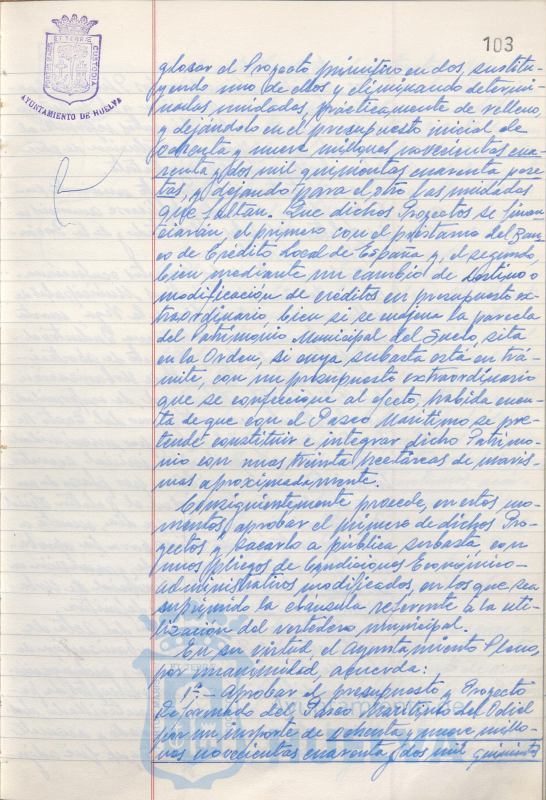 103
AYUNTAMIENTO DE HUELVA
glosar el Proyecto primitivo en dos, sustitu-
yendo uno de ellos y eliminando determi-
nadas unidades, prácticamente de relleno,
y dejándolo en el presupuesto inicial de
ochenta y nueve millones novecientas cua-
renta y dos mil quinientas cuarenta pese-
tas, y dejando para el otro las unidades
que faltan. Que dichos Proyectos se finan-
ciarán, el primero con el préstamo del Ban-
co de Crédito Local de España y, el segundo,
bien mediante un cambio de destino o
modificación de créditos en presupuesto ex-
traordinario bien si se enajena la parcela
del Patrimonio Municipal del Suelo, sita
en la Orden, si cuya subasta está en trá-
mite, con un presupuesto extraordinario
que se confeccione al efecto, habida cuen-
ta de que con el Paseo Marítimo se pre-
tende constituir e integrar dicho Patrimo-
nio con unas treinta hectáreas de maris-
mas aproximadamente.
Consiguientemente procede, en estos mo-
mentos, aprobar el primero de dichos Pro-
yectos y sacarlo a pública subasta con
unos pliegos de Condiciones Económico-
administrativas modificados, en los que sea
suprimido la cláusula referente a la uti-
lización del vertedero municipal.
En su virtud, el Ayuntamiento Pleno,
por unanimidad, acuerda:
1º.- Aprobar el presupuesto y Proyecto
Reformado del Paseo Marítimo del Odiel
por un importe de ochenta y nueve millo-
nes novecientas cuarenta y dos mil quinientas